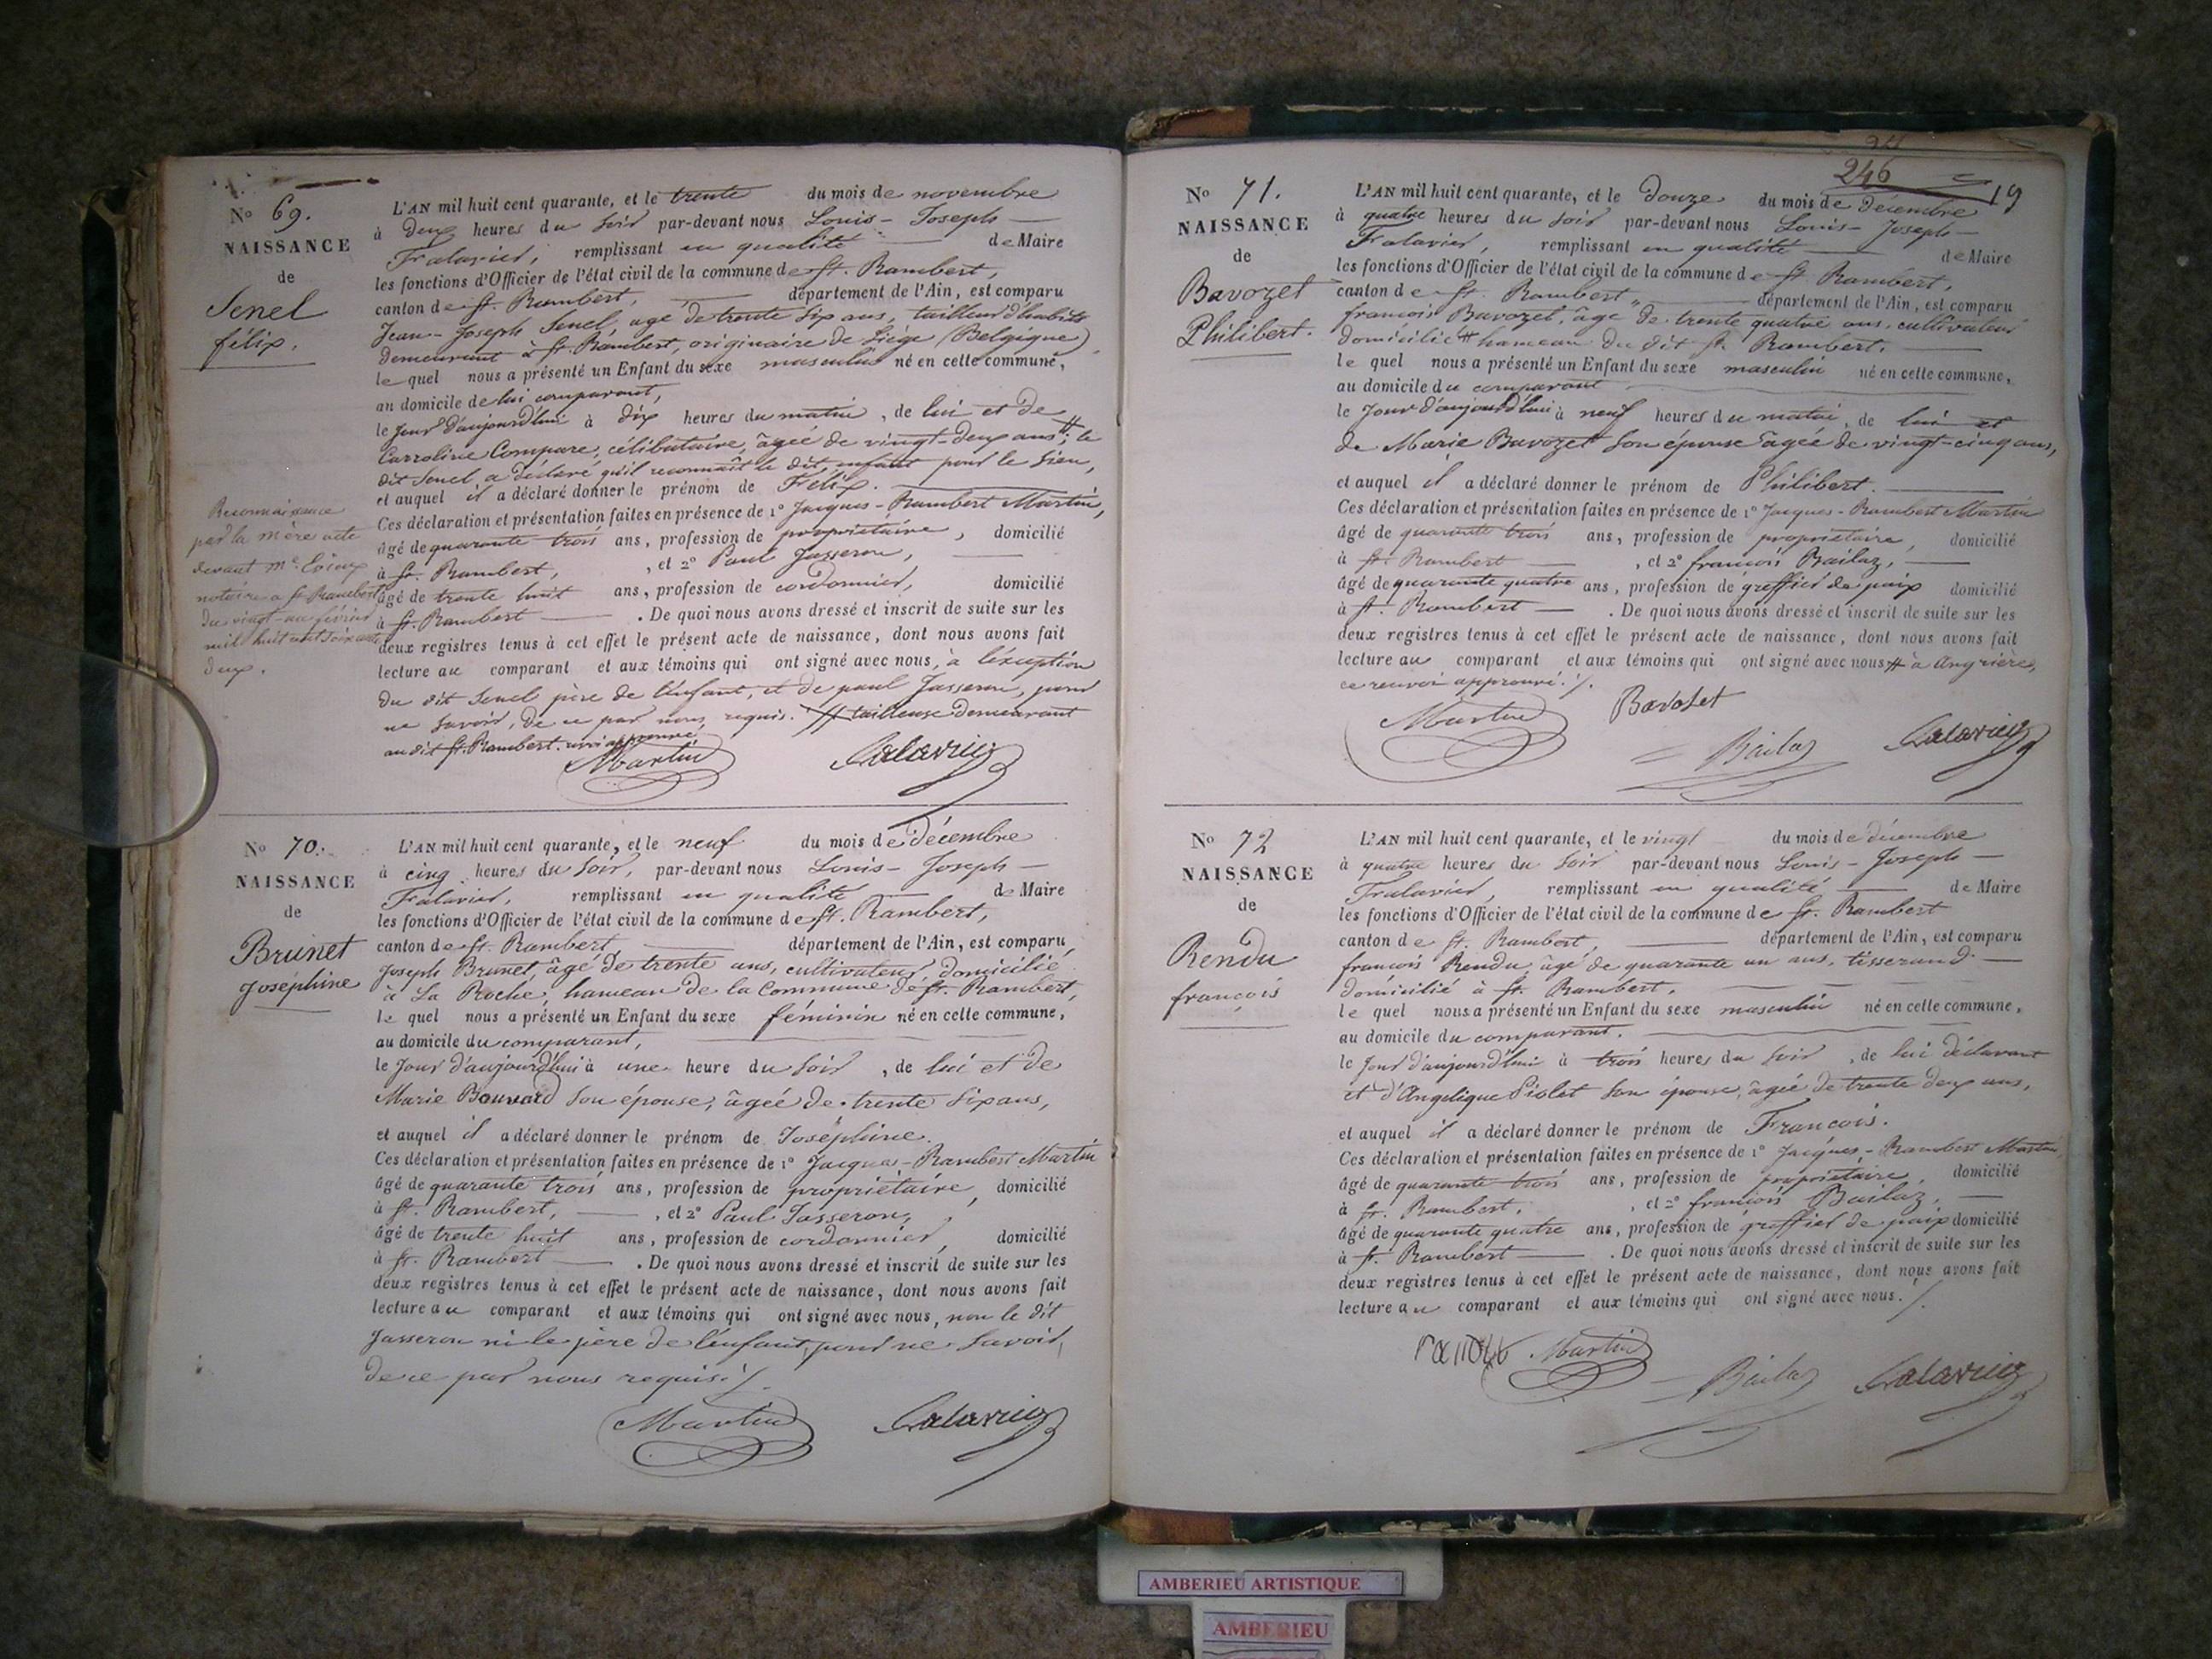 No 69.
NAISSANCE
de
Senel
félix.
Reconnaissance
par la mère acte
devant Me.
notaire a St Rambert
du vingt-un février
mil huit cent soixante
deux.
L'AN mil huit cent quarante, et le trente du mois de novembre
à deux heures du soir par-devant nous Louis-Joseph
Falavier, remplissant en qualité de Maire
les fonctions d'Officier de l'état civil de la commune de St. Rambert,
canton de St. Rambert, département de l'Ain, est comparu
Jean-Joseph Senel, agé de trente six ans, tailleur d'habits
demeurant à St. Rambert, originaire de Liége (Belgique)
le quel nous a présenté un Enfant du sexe masculin né en cette commune,
au domicile de lui comparant,
le jour d'aujourd'hui à dix heures du matin, de lui et de
Carroline Compare, célibataire, âgée de vingt-deux ans #; le
dit Senel a déclaré qu'il reconnaît le dit enfant pour le sien,
et auquel il a déclaré donner le prénom de Félix.
Ces déclaration et présentation faites en présence de 1o Jacques-Rambert Martin,
âgé de quarante trois ans, profession de propriétaire, domicilié
à St. Rambert, , et 2o Paul Jasseron,
âgé de trente huit ans, profession de cordonnier, domicilié
à St. Rambert . De quoi nous avons dressé et inscrit de suite sur les
deux registres tenus à cet effet le présent acte de naissance, dont nous avons fait
lecture au comparant et aux témoins qui ont signé avec nous, à l'exception
du dit Senel père de l'enfant, et de paul Jasseron, pour
ne savoir, de ce par nous requis. # tailleuse demeurant
au dit St. Rambert. approuvé
Martin Falavier
No 70.
NAISSANCE
de
Brunet
Joséphine
L'AN mil huit cent quarante, et le neuf du mois de décembre
à cinq heures du soir, par-devant nous Louis-Joseph
Falavier, remplissant en qualité de Maire
les fonctions d'Officier de l'état civil de la commune de St. Rambert,
canton de St. Rambert, département de l'Ain, est comparu
Joseph Brunet, âgé de trente ans, cultivateur, domicilié
à La Roche, hameau de la Commune de St. Rambert,
le quel nous a présenté un Enfant du sexe féminin né en cette commune,
au domicile du comparant,
le jour d'aujourd'hui à une heure du soir, de lui et de
Marie Bouvard son épouse, âgée de trente six ans,
et auquel il a déclaré donner le prénom de Joséphine.
Ces déclaration et présentation faites en présence de 1o Jacques-Rambert Martin
âgé de quarante trois ans, profession de propriétaire, domicilié
à St. Rambert, , et 2o Paul Jasseron,
âgé de trente huit ans, profession de cordonnier, domicilié
à St. Rambert . De quoi nous avons dressé et inscrit de suite sur les
deux registres tenus à cet effet le présent acte de naissance, dont nous avons fait
lecture au comparant et aux témoins qui ont signé avec nous, non le dit
Jasseron ni le père de l'enfant, pour ne savoir,
de ce par nous requis./.
Martin Falavier
246
19
No 71.
NAISSANCE
de
Bavozet
Philibert.
L'AN mil huit cent quarante, et le douze du mois de décembre
à quatre heures du soir par-devant nous Louis-Joseph
Falavier, remplissant en qualité de Maire
les fonctions d'Officier de l'état civil de la commune de St. Rambert,
canton de St. Rambert, département de l'Ain, est comparu
françois Bavozet, âgé de trente quatre ans, cultivateur
domicilié # hameau du dit St. Rambert.
le quel nous a présenté un Enfant du sexe masculin né en cette commune,
au domicile du comparant
le jour d'aujourd'hui à neuf heures du matin, de lui et
de Marie Bavozet son épouse âgée de vingt-cinq ans,
et auquel il a déclaré donner le prénom de Philibert.
Ces déclaration et présentation faites en présence de 1o Jacques-Rambert Martin
âgé de quarante trois ans, profession de propriétaire, domicilié
à St. Rambert , et 2o françois Bailaz,
âgé de quarante quatre ans, profession de greffier de paix domicilié
à St. Rambert . De quoi nous avons dressé et inscrit de suite sur les
deux registres tenus à cet effet le présent acte de naissance, dont nous avons fait
lecture au comparant et aux témoins qui ont signé avec nous # à Angrières,
ce renvoi approuvé./.
Martin Bavoset Bailaz Falavier
No 72
NAISSANCE
de
Rendu
françois
L'AN mil huit cent quarante, et le vingt du mois de décembre
à quatre heures du soir par-devant nous Louis-Joseph
Falavier, remplissant en qualité de Maire
les fonctions d'Officier de l'état civil de la commune de St. Rambert
canton de St. Rambert, département de l'Ain, est comparu
françois Rendu, âgé de quarante un ans, tisserand.
domicilié à St. Rambert.
le quel nous a présenté un Enfant du sexe masculin né en cette commune,
au domicile du comparant.
le jour d'aujourd'hui à trois heures du soir, de lui déclarant
et d'Angelique Piolet son épouse, âgée de trente deux ans,
et auquel il a déclaré donner le prénom de François.
Ces déclaration et présentation faites en présence de 1o Jacques-Rambert Martin,
âgé de quarante trois ans, profession de propriétaire, domicilié
à St. Rambert, , et 2o françois Bailaz,
âgé de quarante quatre ans, profession de greffier de paix domicilié
à St. Rambert . De quoi nous avons dressé et inscrit de suite sur les
deux registres tenus à cet effet le présent acte de naissance, dont nous avons fait
lecture au comparant et aux témoins qui ont signé avec nous./.
Martin Bailaz Falavier
AMBERIEU ARTISTIQUE
AMBERIEU